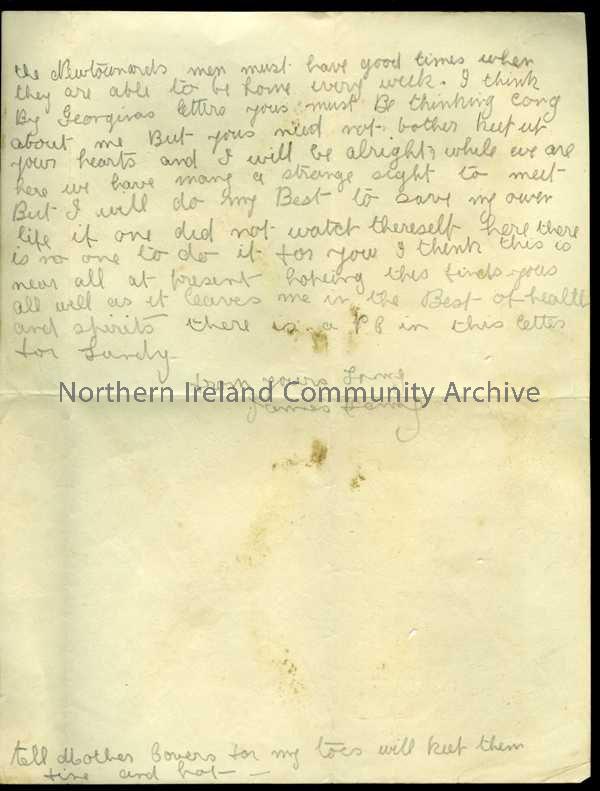 the Newtownards men must have good times when
they are able to be home every week. I think
By Georginas lettre yous must Be thinking long
about me But yous need not bother keep up
your hearts and I will be alright while we are
here we have many a strange sight to meet
But I will do my Best to save my own
life if one did not watch thereself here there
is no one to do it for you I think this is
near all at present hoping this finds yous
all well as it leaves me in the Best of health
and spirits there is a PC in this letter
for Sandy
from yours
Northern Ireland Community Archive
James
tell Mother Covers for my toes will keep them
fine and hot —